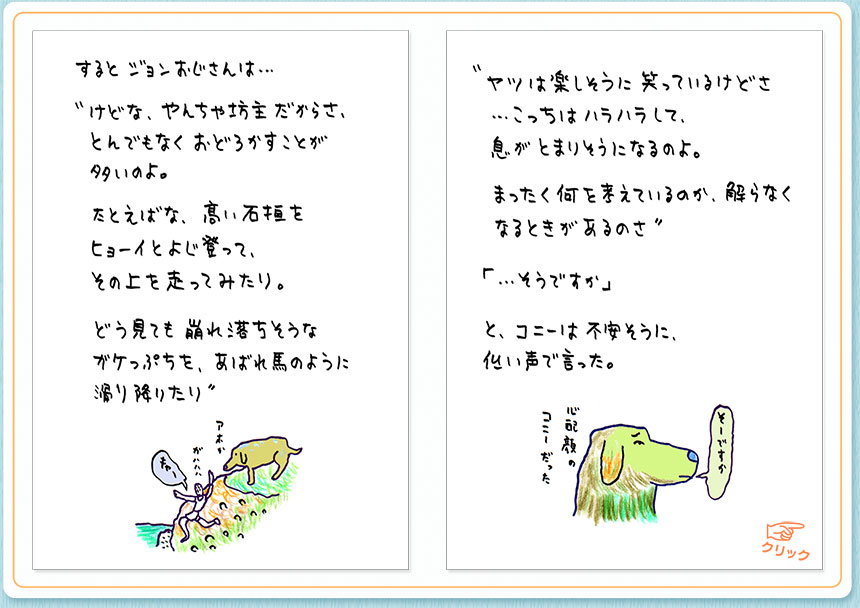 すると ジョンおじさんは…
“けどな、やんちゃ坊主 だからさ、
とんでもなく おどろかすことが
多いのよ。
たとえばな、高い石垣を
ヒョーイとよじ登って、
その上を走ってみたり。
どう見ても 崩れ落ちそうな
ガケっぷちを、あばれ馬のように
滑り降りたり”
アホか
ガハハハ
“ヤツは楽しそうに 笑っているけどさ
…こっちは ハラハラして、
息が とまりそうになるのよ。
まったく何を考えているのか、解らなく
なるときがあるのさ”
「…そうですか」
と、コニーは 不安そうに、
低い声で言った。
心配顔の
コニーだった
そーですか
クリック